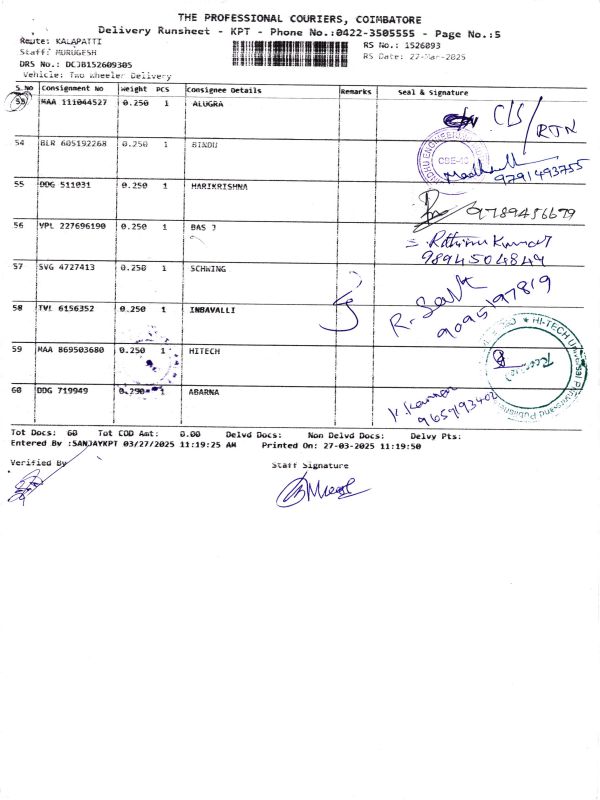 THE PROFESSIONAL COURIERS, COIMBATORE
Delivery Runsheet - KPT - Phone No.:0422-3505555 - Page No.:5
Route: KALAPATTI
RS No.: 1526093
Staff: MURUGESH
RS Date: 27-Mar-2025
DRS No.: DCJB152609305
Vehicle: Two Wheeler Delivery
S.No Consignment No Weight PCS Consignee Details Remarks Seal & Signature
53 MAA 111044527 0.250 1 ALUGRA C/S / RTN
54 BLR 605192268 0.250 1 BINDU CBE-48
9791493755
55 DDG 511031 0.250 1 HARIKRISHNA 9789456679
56 VPL 227696190 0.250 1 BAS J Kumar
9894504844
57 SVG 4727413 0.250 1 SCHWING
58 TVL 6156352 0.250 1 INBAVALLI R.
9095197819
59 MAA 869503680 0.250 1 HITECH HI-TECH Universal
60 DDG 719949 0.250 1 ABARNA
9659193402
Tot Docs: 60 Tot COD Amt: 0.00 Delvd Docs: Non Delvd Docs: Delvy Pts:
Entered By :SANJAYKPT 03/27/2025 11:19:25 AM Printed On: 27-03-2025 11:19:50
Verified By
Staff Signature